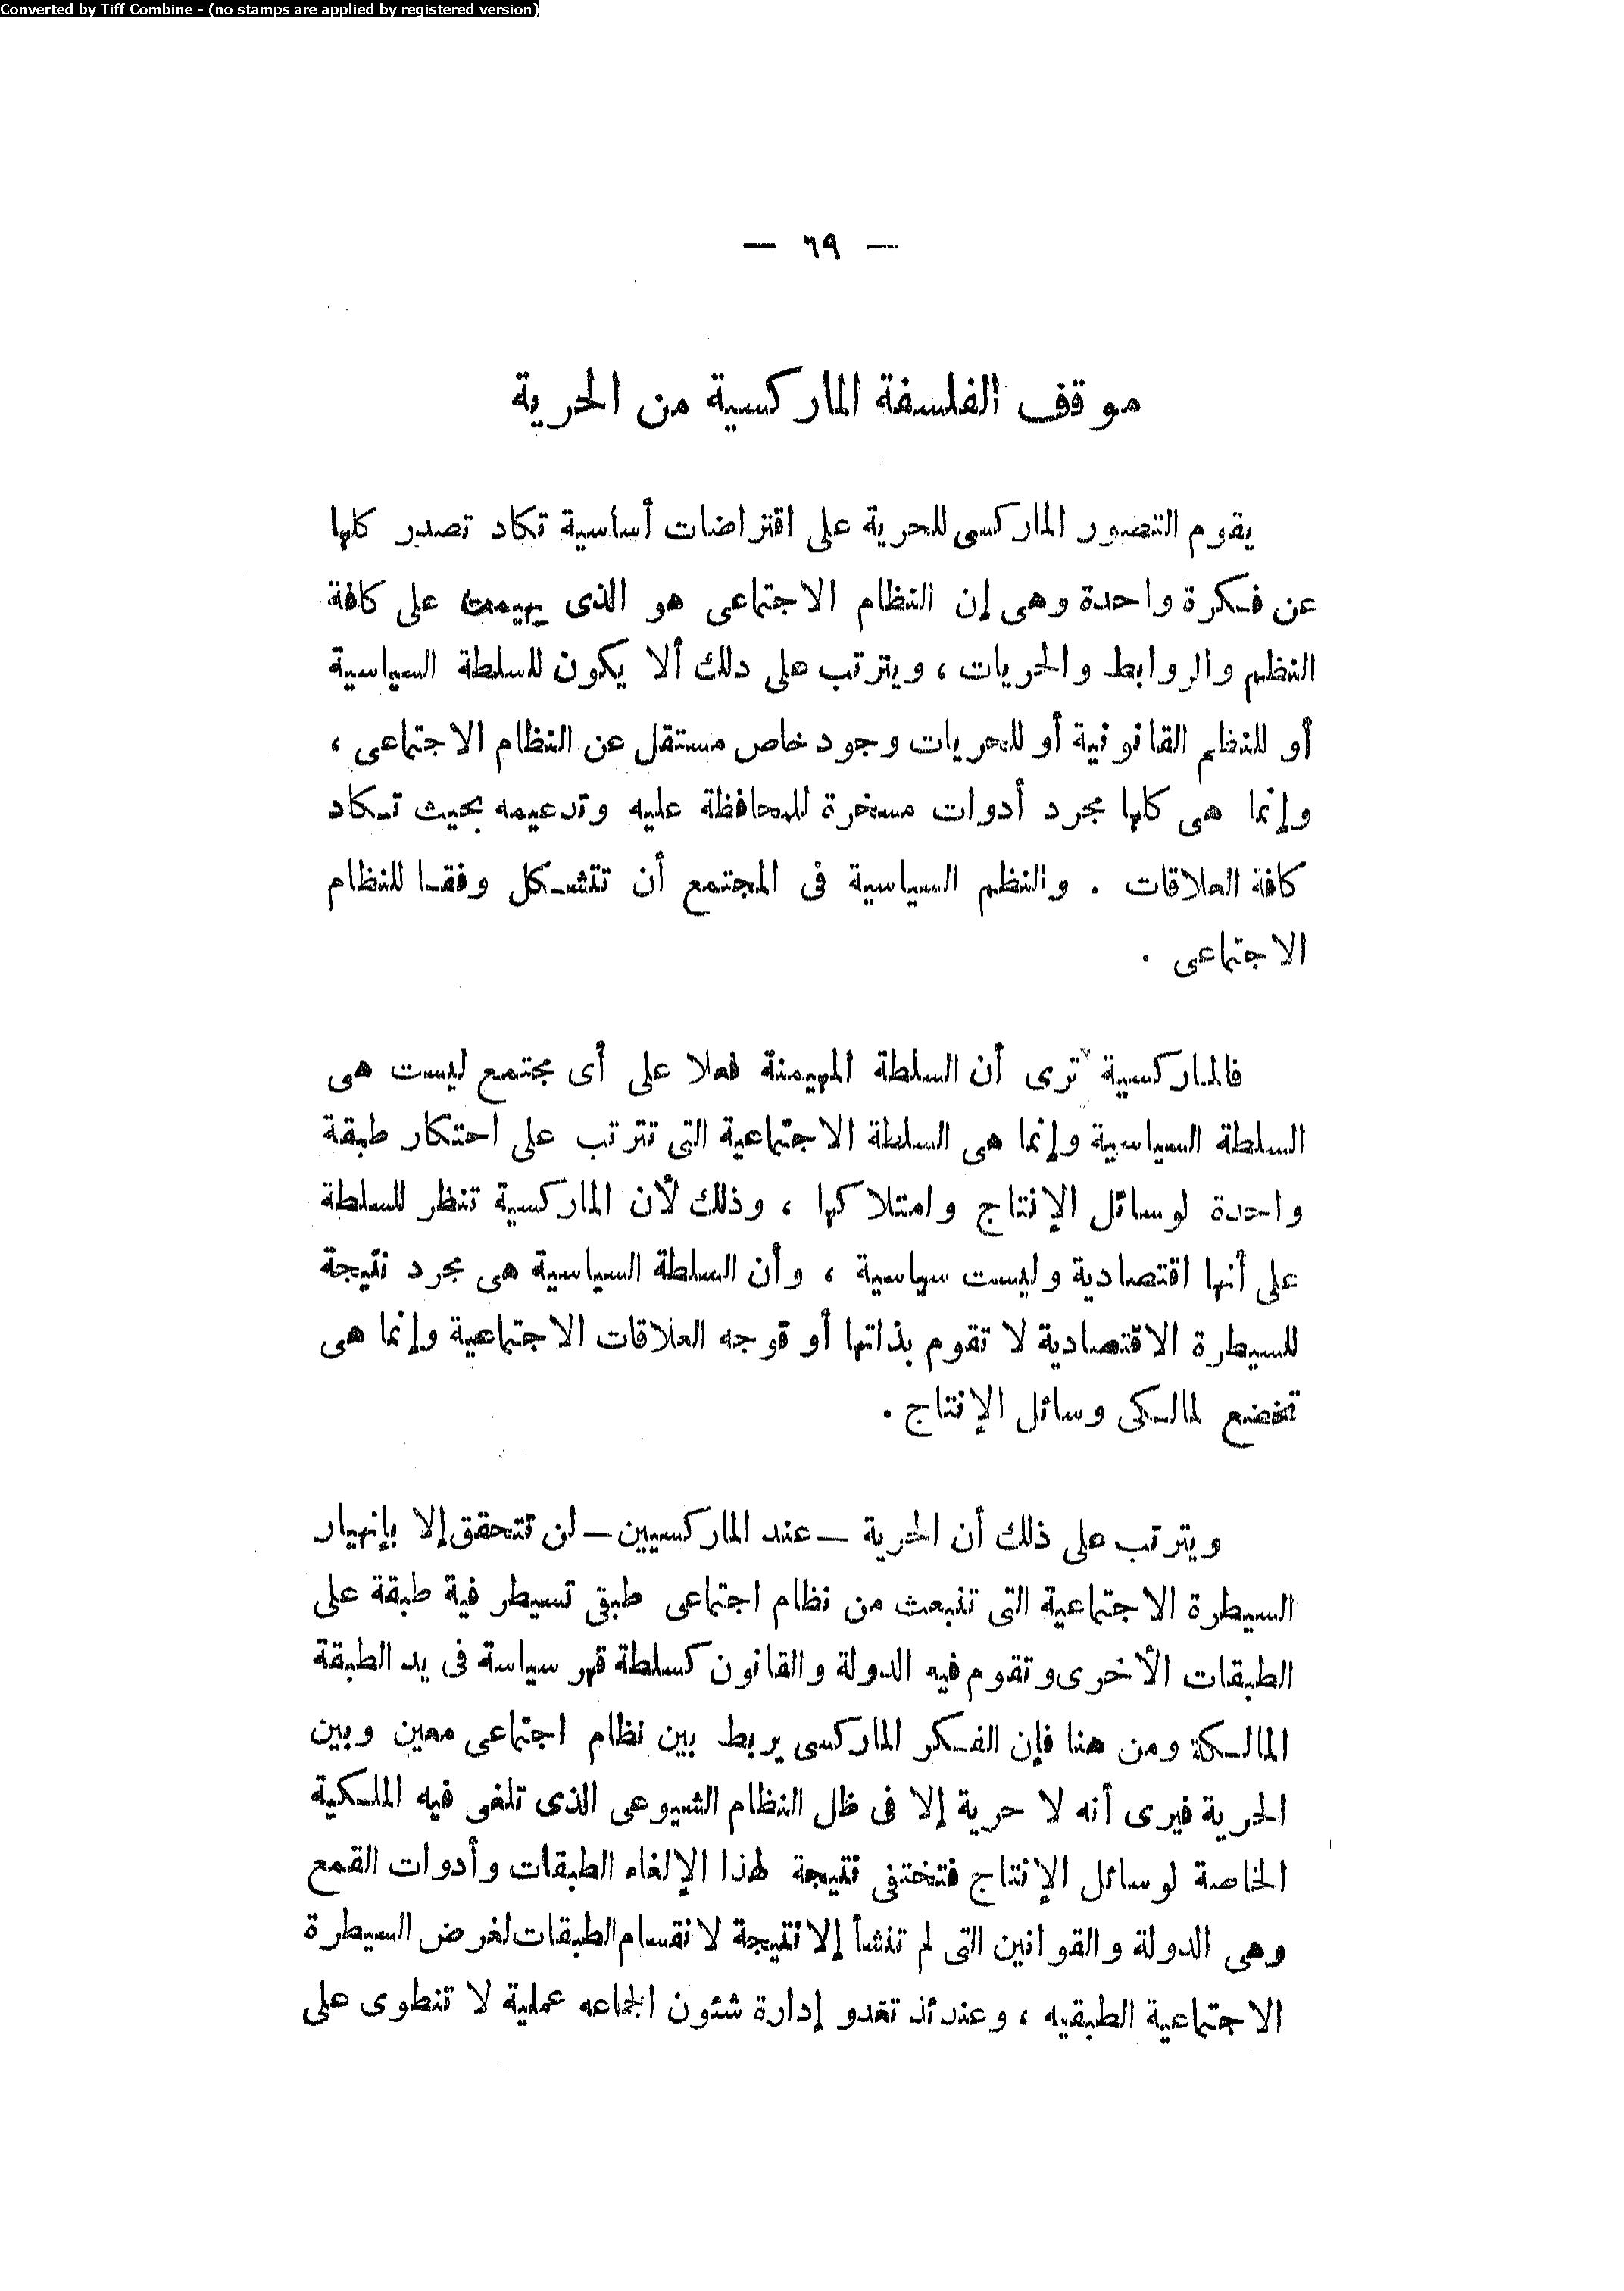 Converted by Tiff Combine - (no stamps are applied by registered version)
— ٦٩ —
موقف الفلسفة الماركسية من الحرية
يقوم التصور الماركسى للحرية على اقتراضات أساسية تكاد تصدر كلها
عن فكرة واحدة وهى إن النظام الاجتماعى هو الذى يهيمن على كافة
النظم والروابط والحريات ، ويترتب على دلك ألا يكون للسلطة السياسية
أو للنظم القانونية أو للحريات وجود خاص مستقل عن النظام الاجتماعى ،
وإنما هى كلها مجرد أدوات مسخرة للمحافظة عليه وتدعيمه بحيث تكاد
كافة العلاقات . والنظم السياسية فى المجتمع أن تتشكل وفقا للنظام
الاجتماعى .
فالماركسية ترى أن السلطة المهيمنة فعلا على أى مجتمع ليست هى
السلطة السياسية وإنما هى السلطة الاجتماعية التى تترتب على احتكار طبقة
واحدة لوسائل الإنتاج وامتلاكها ، وذلك لأن الماركسية تنظر للسلطة
على أنها اقتصادية وليست سياسية ، وأن السلطة السياسية هى مجرد نتيجة
للسيطرة الاقتصادية لا تقوم بذاتها أو قوجه العلاقات الاجتماعية وإنما هى
تخضع لمالكى وسائل الإنتاج .
ويترتب على ذلك أن الحرية — عند الماركسيين — لن تتحقق إلا بإنهيار
السيطرة الاجتماعية التى تنبعث من نظام اجتماعى طبقى تسيطر فية طبقة على
الطبقات الأخرى وتقوم فيه الدولة والقانون كسلطة قهر سياسة فى يد الطبقة
المالكة ومن هنا فإن الفكر الماركسى يربط بين نظام اجتماعى معين وبين
الحرية فيرى أنه لا حرية إلا فى ظل النظام الشيوعى الذى تلغى فيه الملكية
الخاصة لوسائل الإنتاج فتختفى نتيجة لهذا الإلغاء الطبقات وأدوات القمع
وهى الدولة والقوانين التى لم تنشأ إلا نتيجة لانقسام الطبقات لغرض السيطرة
الاجتماعية الطبقيه ، وعندئذ تغدو إدارة شئون الجماعه عملية لا تنطوى على